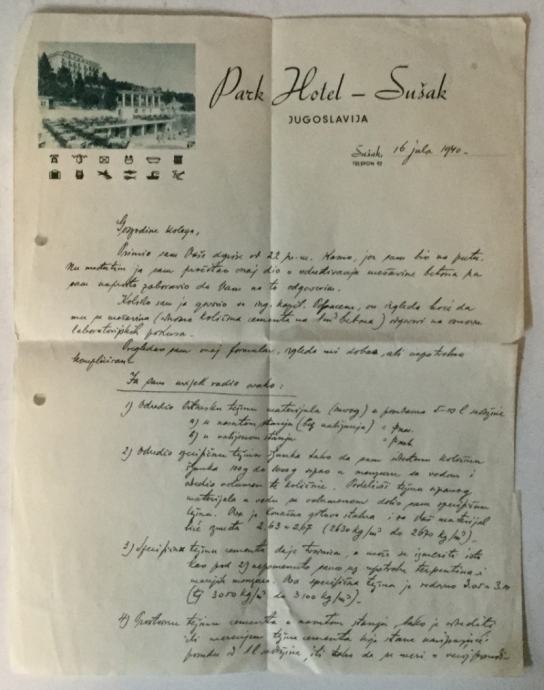 Park Hotel – Sušak
JUGOSLAVIJA
Sušak, 16 jula 1940.
TELEFON
Gospodine kolega,
Primio sam Vaše od 22 pr. m. jer sam bio na putu.
sam onaj dio o određivanju mešavine betona pa
sam zaboravio da Vam na to odgovorim.
Koliko sam ja govorio sa ing. kapit. on izgleda hoće da
mu se mešavina (količina cementa na 1m³ betona) odgovori na osnovu
laboratorijskih
Pregledao sam onaj formular, izgleda mi dobar, ali
kompliciran
Ja sam uvijek radio ovako:
1) Odredio težinu materijala (suvog) u posudama 5–10 l sadržine
a) u stanju (bez nabijanja)
b) u nabijenom stanju
2) Odredio specifičnu težinu šljunka tako da sam količinu
šljunka 100g do 1000g sipao u menzuru sa vodom i
odredio volumen te količine. Podelivši težinu
materijala u vodu sa volumenom dobio sam specifičnu
težinu. Ova je gotovo stalna i za Vaš materijal
biće između 2,63 i 2,67 (2630 kg/m³ do 2670 kg/m³).
3) Specifičnu težinu cementa daje tvornica, a može se izmeriti isto
kao pod 2) samo uz upotrebu terpentina i
manjih menzura. Ova specifična težina je redovno 3.05 – 3.10
(tj 3050 kg/m³ do 3100 kg/m³).
4) težinu cementa u stanju, lako je odrediti
ili merenjem težine cementa koji stane
posudu od 1 l sadržine, ili tako da se meri u